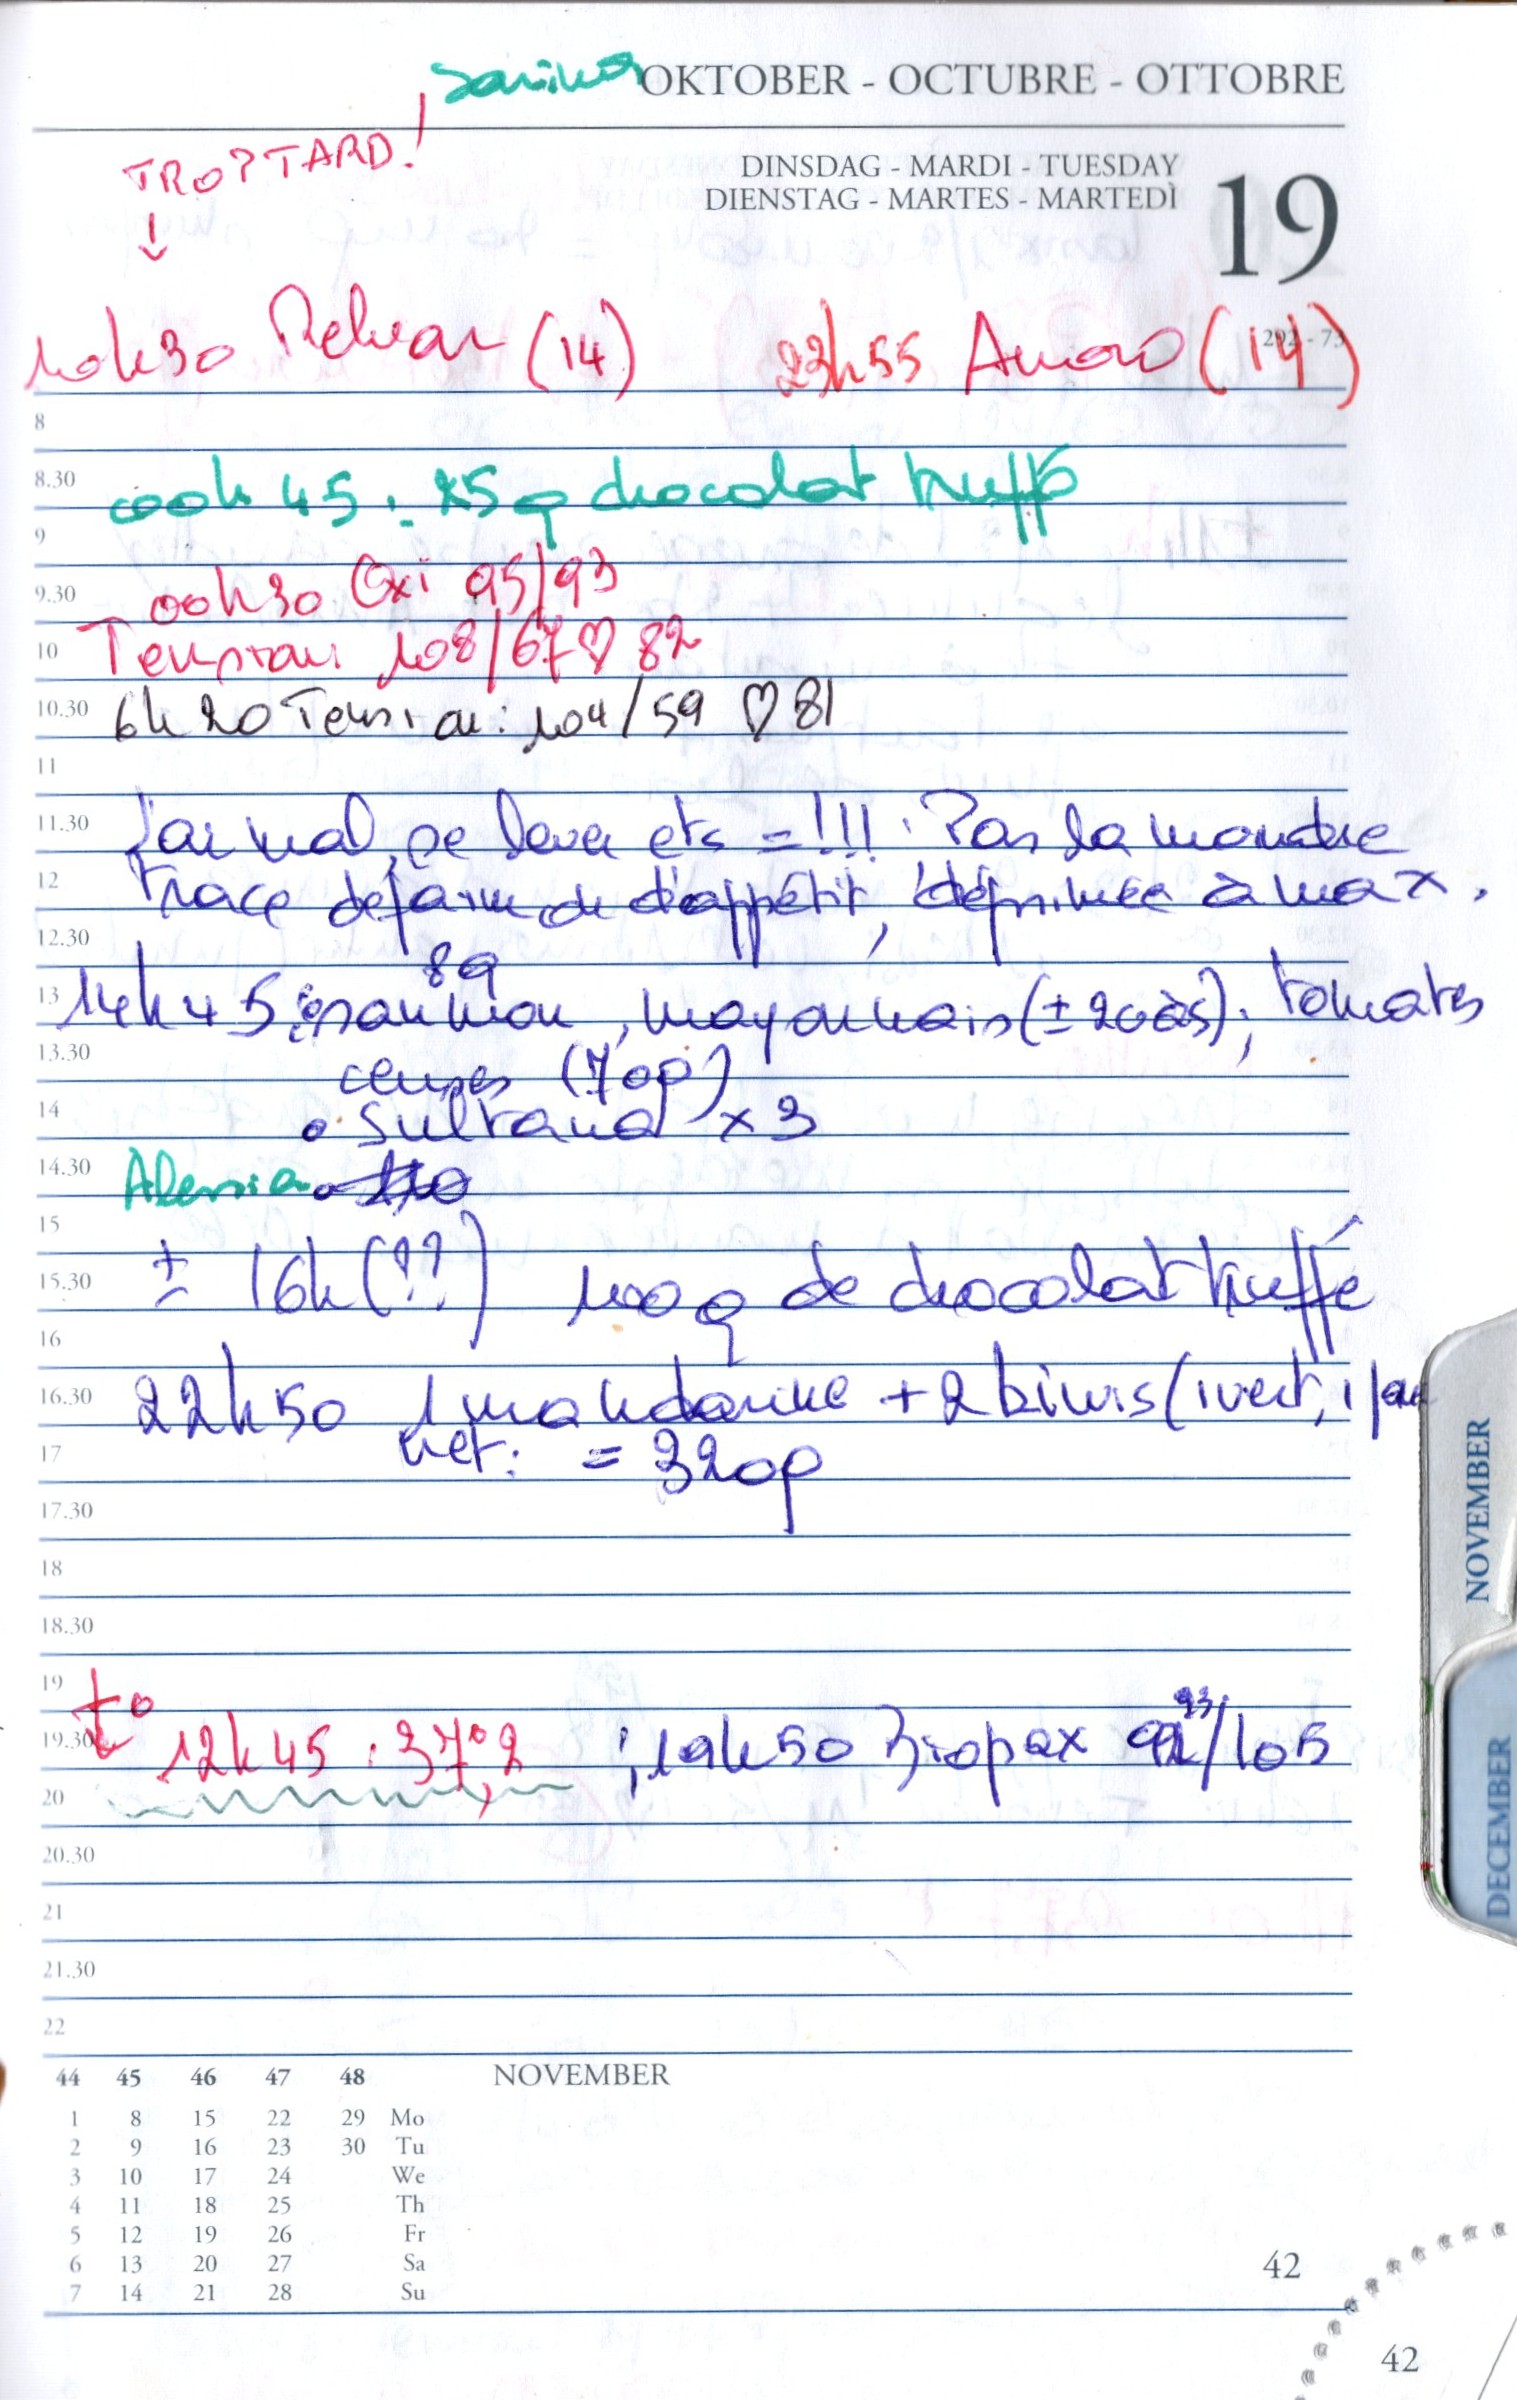 OKTOBER - OCTUBRE - OTTOBRE
TROP TARD!
↓
DINSDAG - MARDI - TUESDAY
DIENSTAG - MARTES - MARTEDÌ
19
292 - 73
10h30 Relvar (14) 23h55 Amoro (14)
8
8.30 00h45 : 25g chocolat truffé
9
9.30 00h30 Oxi 95/93
10 Tension 108/67 ♡ 82
10.30 6h20 Tension: 104/59 ♡ 81
11
11.30 J'ai mal, se lever etc = !!! . Pas la moindre
12 trace de faim ou d'appétit, déprimée à max.
12.30
13 14h45 : saumon, mayonnais (± 20 às) ; tomates
13.30 cerises (70p)
14 • Sultana x 3
14.30 Alessia
15
15.30 ± 16h (??) 100 g de chocolat truffé
16
16.30 22h50 1 mandarine + 2 kiwis (1 vert, 1 jau
17 net: = 320p
17.30
18
18.30
19 t°
19.30 ↓ 12h45 : 37°,2 ; 19h50 Biopax /105
20
20.30
21
21.30
22
44 45 46 47 48 NOVEMBER
1 8 15 22 29 Mo
2 9 16 23 30 Tu
3 10 17 24 We
4 11 18 25 Th
5 12 19 26 Fr
6 13 20 27 Sa
7 14 21 28 Su
42
42
NOVEMBER
DECEMBER